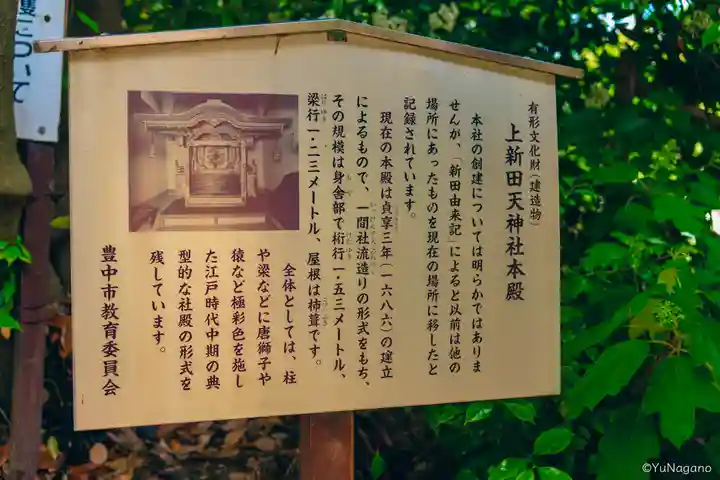 有形文化財(建造物)
上新田天神社本殿
本社の創建については明らかではありま
せんが、「新田由来記」によると以前は他の
場所にあったものを現在の場所に移したと
記録されています。
現在の本殿は貞享三年(一六八六)の建立
によるもので、一間社流造りの形式をもち、
その規模は身舎部で桁行一・五三メートル、
梁行一・二三メートル、屋根は柿葺です。
全体としては、柱
や梁などに唐獅子や
猿など極彩色を施し
た江戸時代中期の典
型的な社殿の形式を
残しています。
豊中市教育委員会
について
©YuNagano